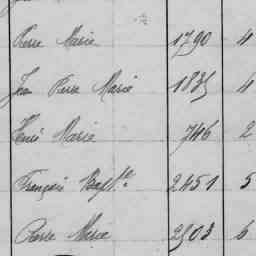 Pierre Marie 1790 4
Jean Pierre Marie 1835 4
René Marie 746 2
François Bapt.te 2451 5
Pierre Marie 2503 6